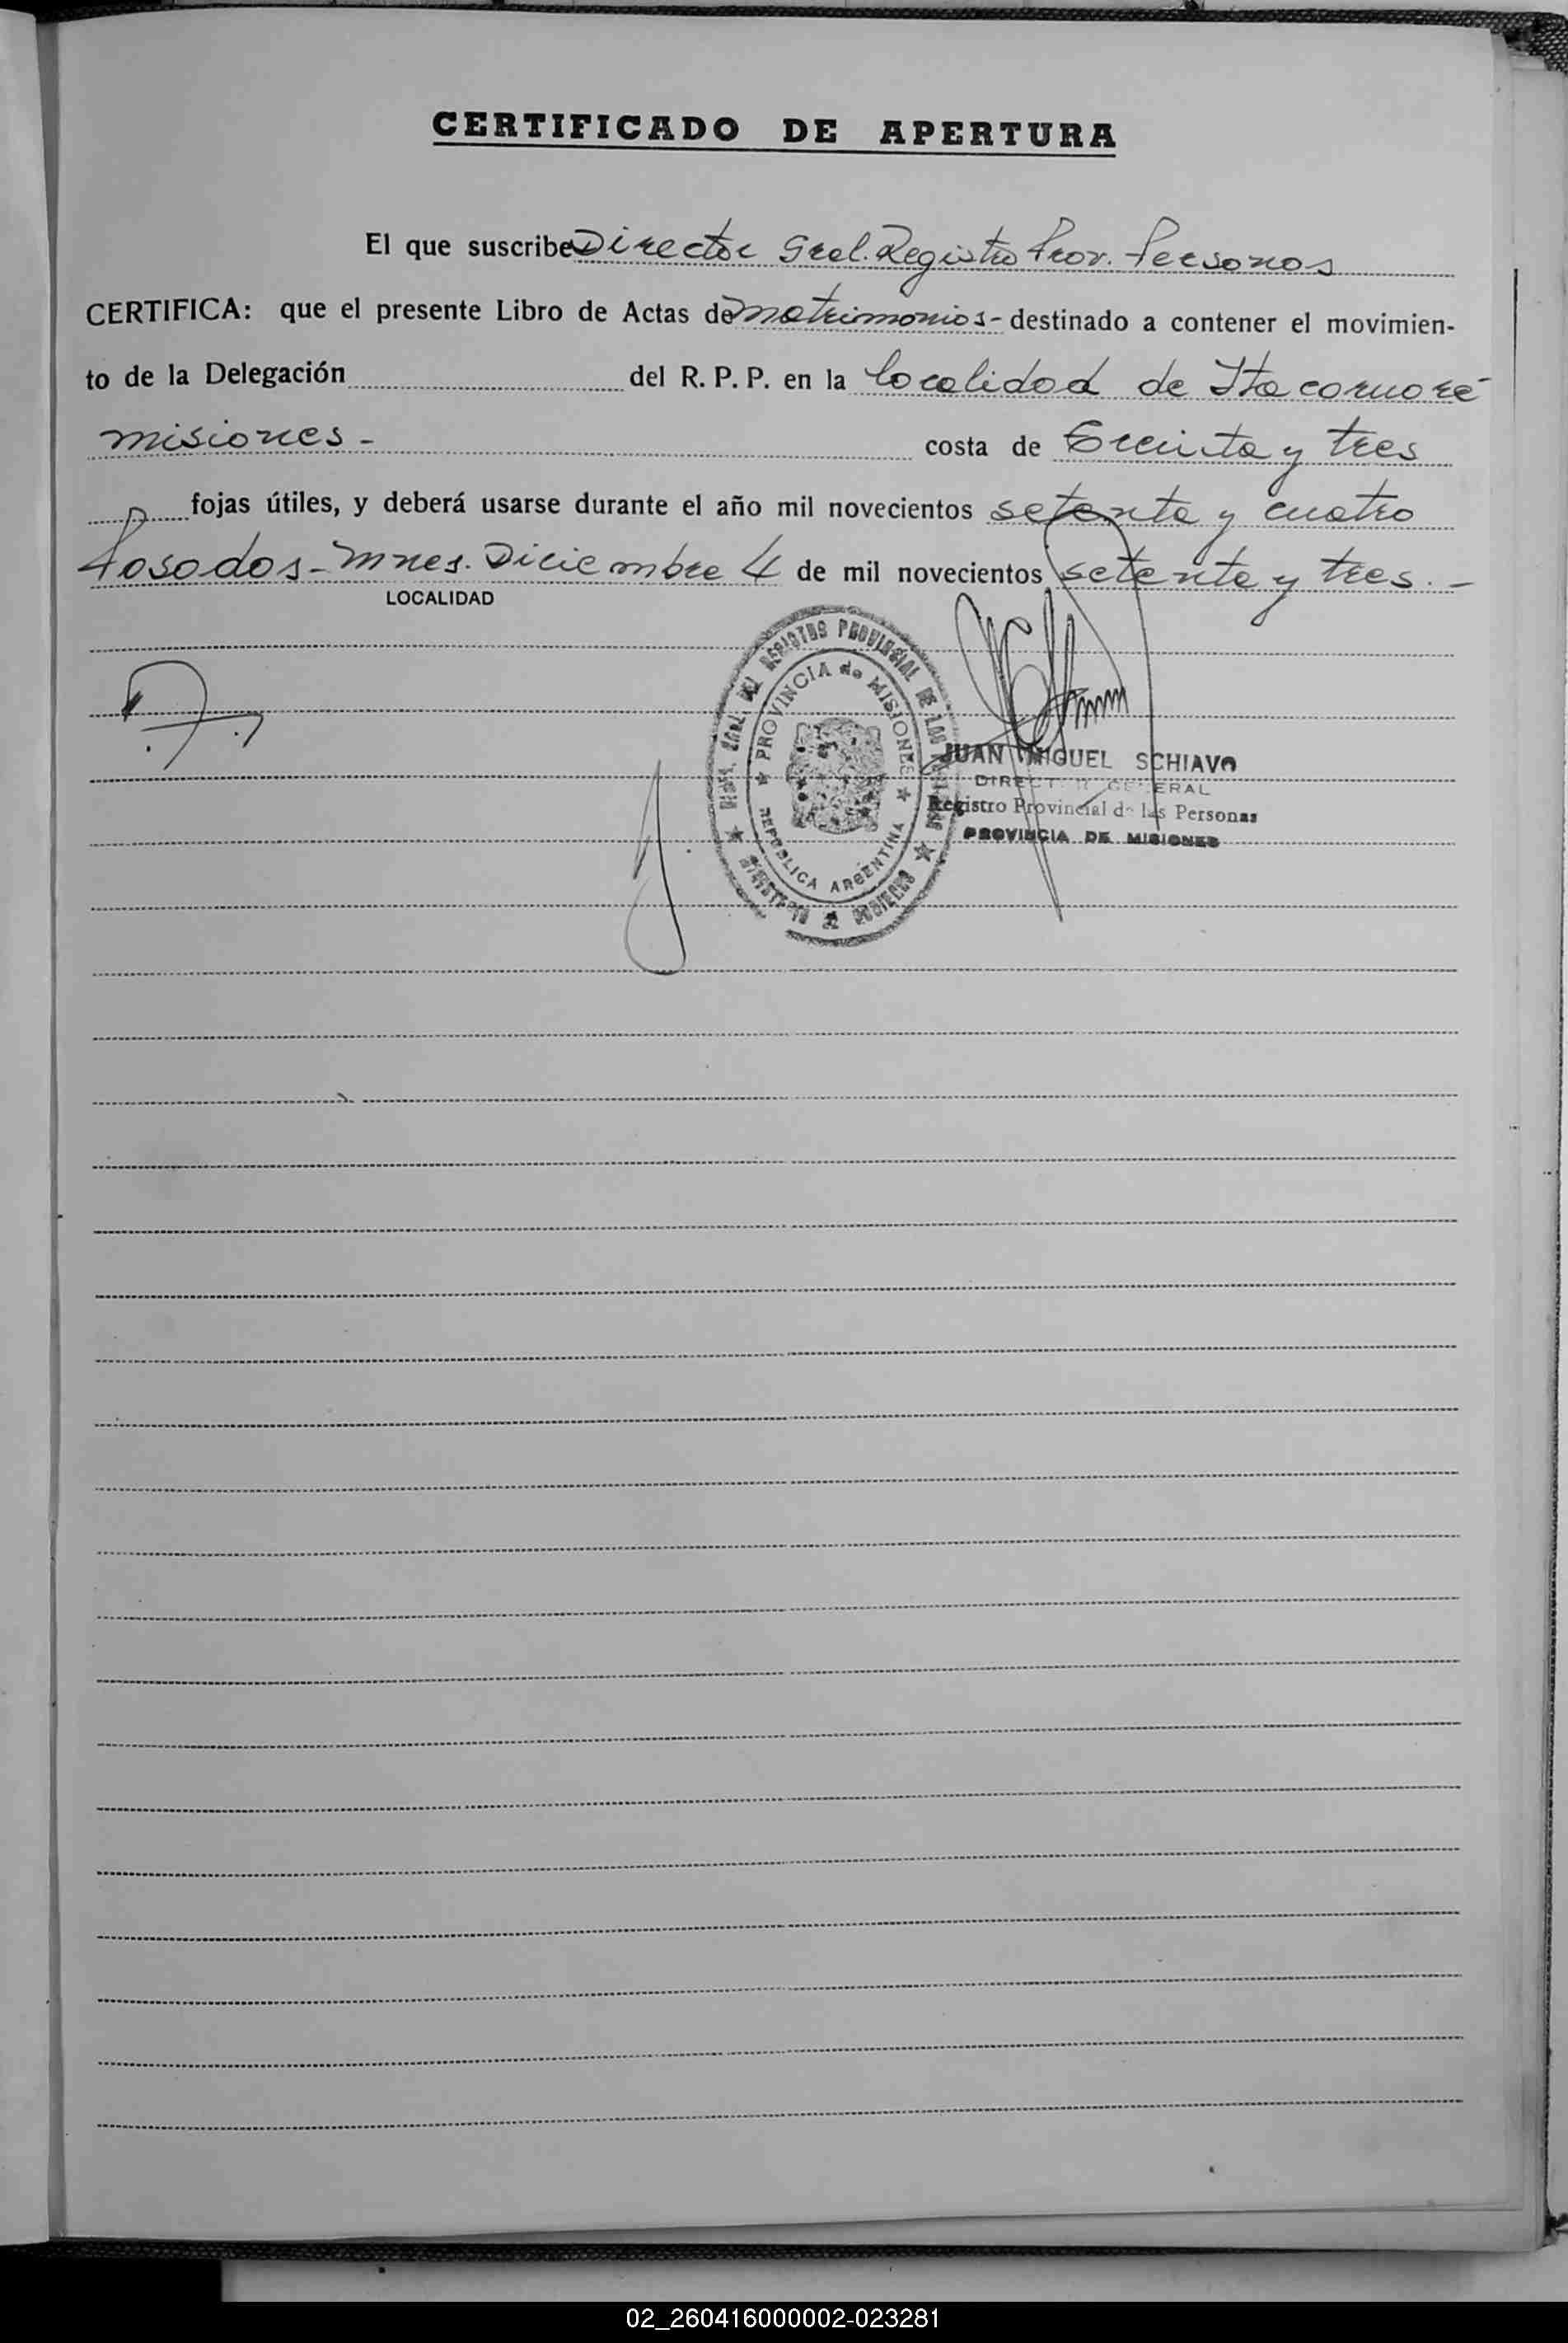 CERTIFICADO DE APERTURA
El que suscribe Director Gral. Registro Prov. Personas
CERTIFICA: que el presente Libro de Actas de matrimonios - destinado a contener el movimien-
to de la Delegación del R. P. P. en la localidad de Itacaruaré
misiones - costa de Treinta y tres
fojas útiles, y deberá usarse durante el año mil novecientos setenta y cuatro
Posadas - Mnes. Diciembre 4 de mil novecientos setenta y tres. -
LOCALIDAD
REGISTRO PROVINCIAL DE LAS
PROVINCIA de MISIONES
REPUBLICA ARGENTINA
MINISTERIO DE GOBIERNO
JUAN MIGUEL SCHIAVO
DIRECTOR GENERAL
Registro Provincial de las Personas
PROVINCIA DE MISIONES
02_260416000002-023281